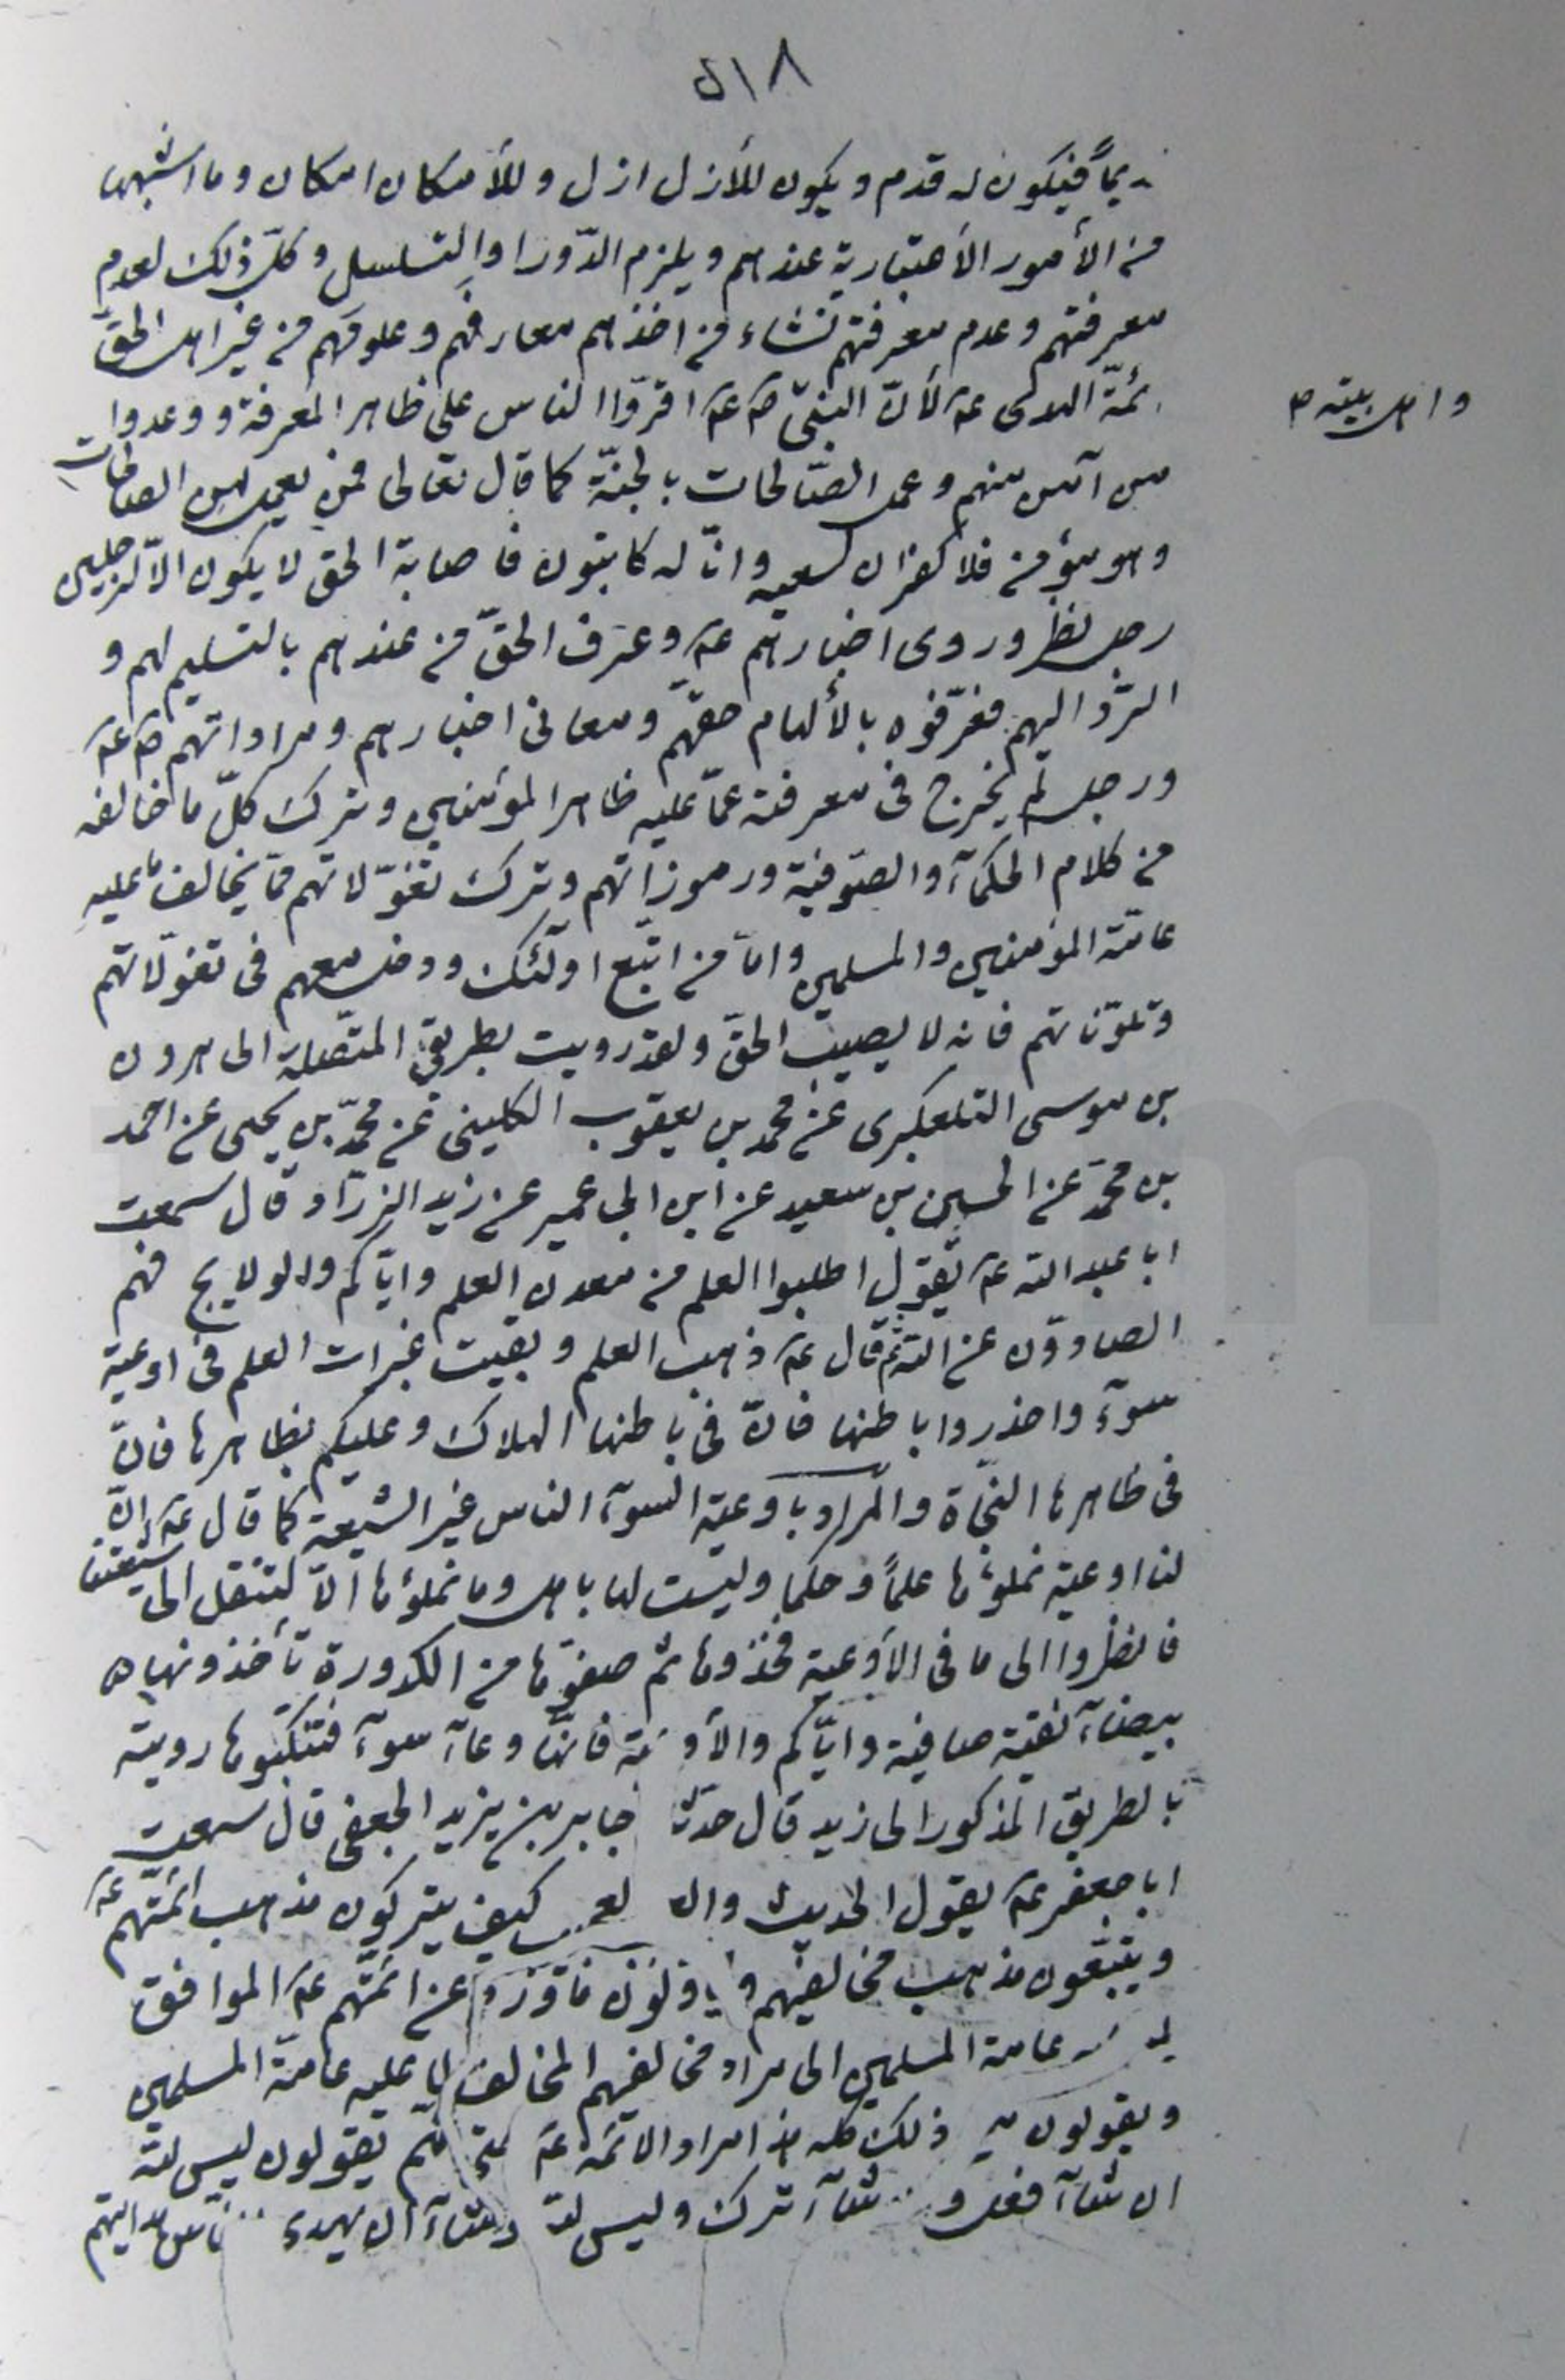 ٥١٨
ـديماً فيكون له قدم ويكون للأزل ازل وللأمكان امكان وما اشبهها
من الأمور الأعتبارية عندهم ويلزم الدّور او التسلسل وكلّ ذلك لعدم
معرفتهم وعدم معرفتهم نشاء من اخذهم معارفهم وعلومهم من غير اهل الحقّ
ئمّة الهدى عـ لأنّ النبىّ صـ عـ اقرّوا الناس على ظاهر المعرفة ووعدوا
واهل بيته صـ
من آمن منهم وعمل الصّالحات بالجنّة كما قال تعالى فمن يعمل من الصالحات
وهو مؤمن فلا كفران لسعيه وانّا له كاتبون فاصابة الحق لا يكون الاّ لرجلين
رجل نظر وروى اخبارهم عـ وعرف الحقّ من عندهم بالتسليم لهم و
الرّد اليهم فعرّفوه بالألهام حقّهم ومعانى اخبارهم ومراداتهم صـ عـ
ورجل لم يخرج فى معرفته عمّا عليه ظاهر المؤمنين وترك كلّ ما خالفه
من كلام الحكمآء والصّوفية ورموزاتهم وترك تقوّلاتهم ممّا يخالف ما عليه
عامّة المؤمنين والمسلمين وامّا من اتّبع اولئك ودخل معهم فى تقوّلاتهم
وتلوّناتهم فانه لا يصيب الحقّ ولقد رويت بطريقى المتّصلة الى هرون
بن موسى التلعكبرى عن محمد بن يعقوب الكلينى عن محمّد بن يحيى عن احمد
بن محمّد عن الحسين بن سعيد عن ابن ابى عمير عن زيد الزرّاد قال سمعت
ابا عبدالله عـ يقول اطلبوا العلم من معدن العلم وايّاكم والولايج فهم
الصادّون عن الله ثم قال عـ ذهب العلم وبقيت غبرات العلم فى اوعية
سوآء واحذروا باطنها فانّ فى باطنها الهلاك وعليكم بظاهرها فانّ
فى ظاهرها النجّاة والمراد باوعية السوآء الناس غير الشيعة كما قال عـ انّ
لنا اوعية نملؤها علماً وحكما وليست لها باهل وما نملؤها الاّ لتنقل الى شيعتنا
فانظروا الى ما فى الأوعية فخذوها ثم صفوّها من الكدورة تأخذونها
بيضآء نقيّة صافية وايّاكم والأوعية فانّها وعآء سوآء فتنكّبوها رويته
بالطريق المذكور الى زيد قال حدّث جابر بن يزيد الجعفى قال سمعت
ابا جعفر عـ يقول الحديث وال لعجب كيف يتركون مذهب ائمّتهم عـ
ويتّبعون مذهب مخالفيهم ويأوّلون ما ورد عن ائمّتهم عـ الموافق
عامة المسلمين الى مراد مخالفيهم المخالف لما عليه عامّة المسلمين
ويقولون ذلك كله هذا مراد الائمّة عـ ثم يقولون ليس لله
ان شآء فعل و شآء ترك وليس لله شآء ان يهدى هدايتهم